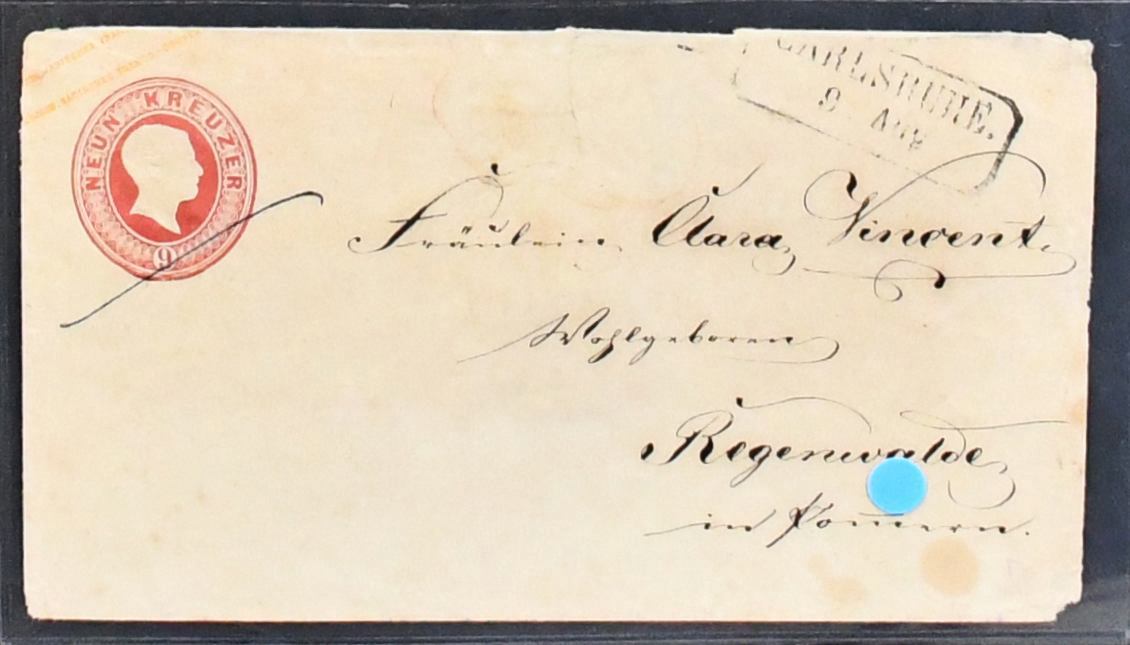 NEUN KREUZER
9
CARLSRUHE.
9 Aug
Fräulein Clara Vincent.
Wohlgeboren
Regenwalde
in Pom̅ern.